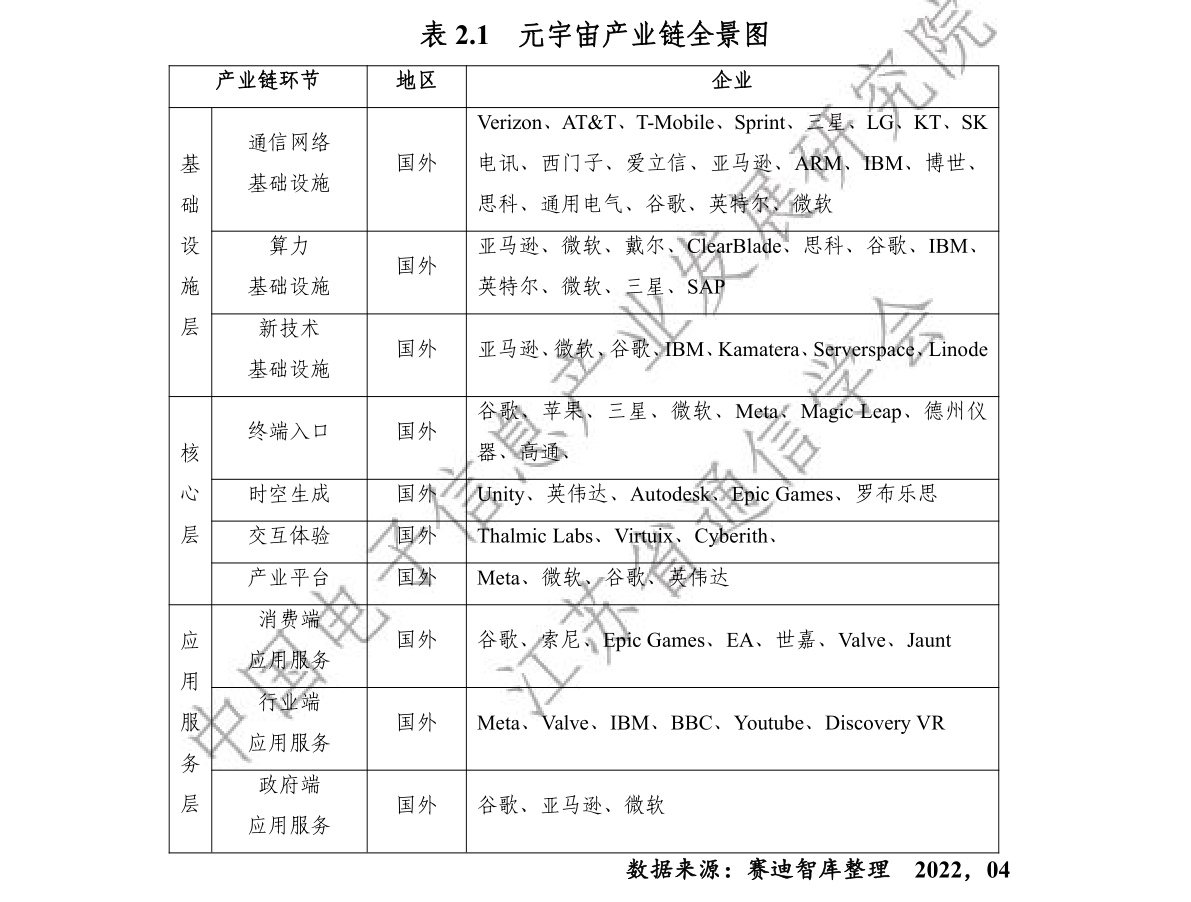 表 2.1 元宇宙产业链全景图
产业链环节 地区 企业
基础设施层
通信网络
基础设施
国外
Verizon、AT&T、T-Mobile、Sprint、三星、LG、KT、SK
电讯、西门子、爱立信、亚马逊、ARM、IBM、博世、
思科、通用电气、谷歌、英特尔、微软
算力
基础设施
国外
亚马逊、微软、戴尔、ClearBlade、思科、谷歌、IBM、
英特尔、微软、三星、SAP
新技术
基础设施
国外
亚马逊、微软、谷歌、IBM、Kamatera、Serverspace、Linode
核心层
终端入口
国外
谷歌、苹果、三星、微软、Meta、Magic Leap、德州仪
器、高通、
时空生成 国外 Unity、英伟达、Autodesk、Epic Games、罗布乐思
交互体验 国外 Thalmic Labs、Virtuix、Cyberith、
产业平台 国外 Meta、微软、谷歌、英伟达
应用服务层
消费端
应用服务
国外
谷歌、索尼、Epic Games、EA、世嘉、Valve、Jaunt
行业端
应用服务
国外
Meta、Valve、IBM、BBC、Youtube、Discovery VR
政府端
应用服务
国外
谷歌、亚马逊、微软
数据来源：赛迪智库整理 2022，04
中国电子信息产业发展研究院
江苏省通信学会